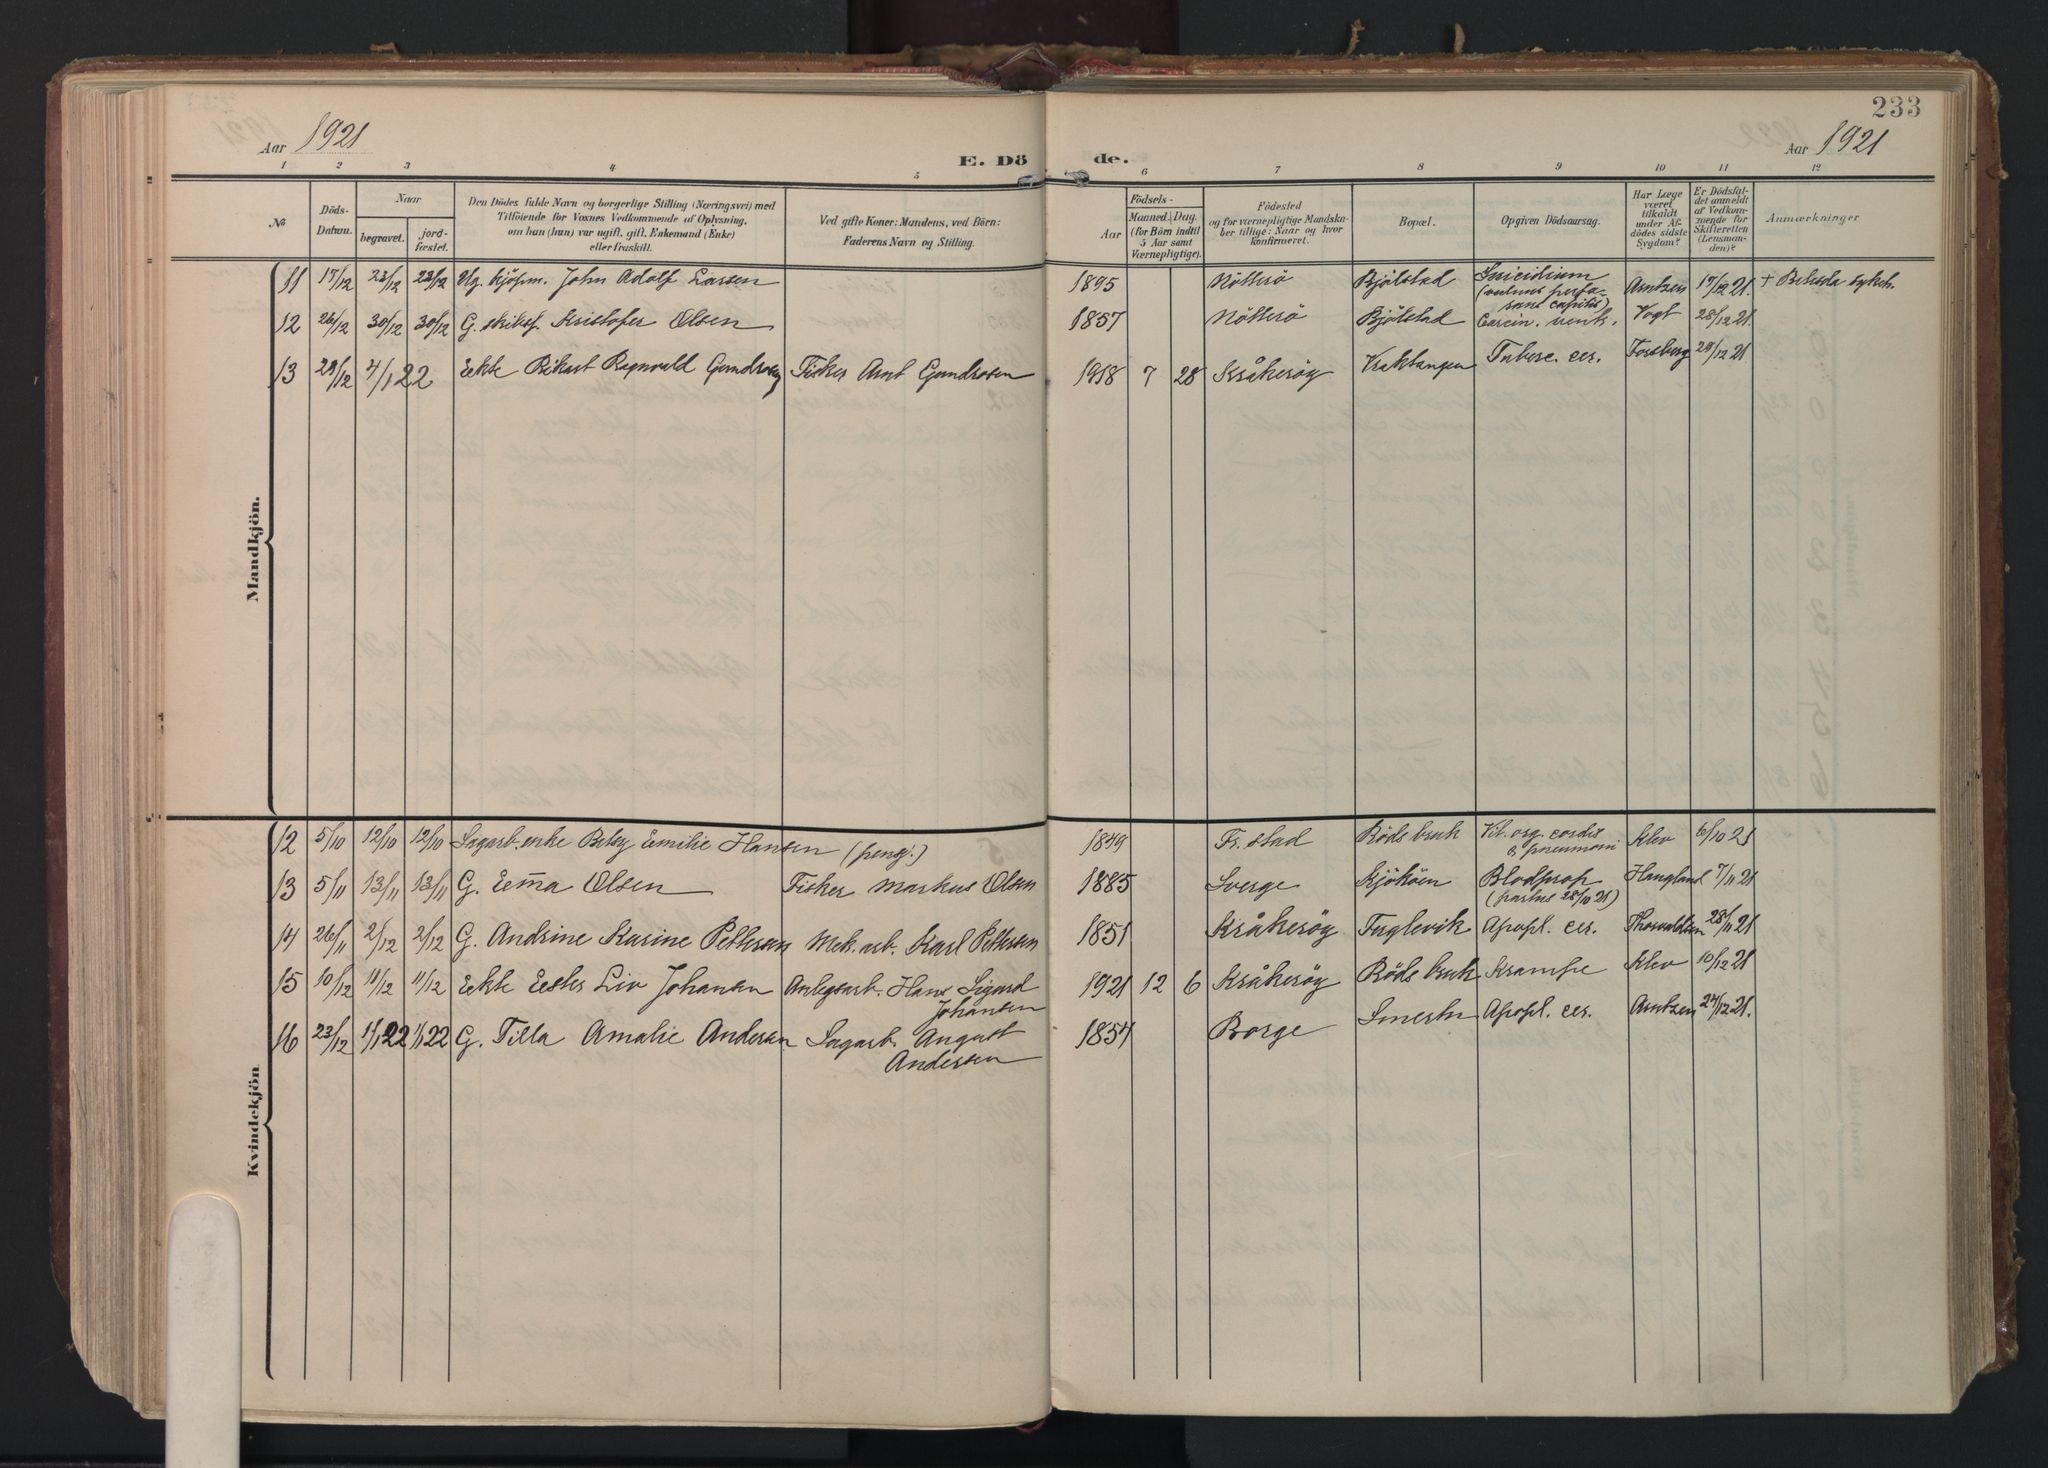 233
Aar 1921
E. Dö de.
Aar 1921
1 2 3 4 5 6 7 8 9 10 11 12
№
Döds-Datum.
Naar
begravet.
jord-fæstet.
Den Dödes fulde Navn og borgerlige Stilling (Næringsvei) med
Tilföiende for Voxnes Vedkommende af Oplysning,
om han (hun) var ugift, gift, Enkemand (Enke)
eller fraskilt.
Ved gifte Koner: Mandens, ved Börn:
Faderens Navn og Stilling.
Födsels-
Aar
Maaned. Dag.
(for Börn indtil
5 Aar samt
Værnepligtige).
Födested
og for værnepligtige Mandska-
ber tillige: Naar og hvor
konfirmeret.
Bopæl.
Opgiven Dödsaarsag.
Har Læge
været
tilkaldt
under Af-
dödes sidste
Sygdom?
Er Dödsfal-
det anmeldt
af Vedkom-
mende for
Skifteretten
(Lensman-
den)?
Anmærkninger
Mandkjön.
11 17/12 23/12 23/12 Ug. kjöpm. John Adolf Larsen 1895 Nötterö Bjölstad Suicidium (vulnus perforans capitis) Arntzen 17/12 21. + Betesda sykeh.
12 26/12 30/12 30/12 G. skibsf. Kristofer Olsen 1857 Nötterö Bjölstad Carcin. ventr. Vogt 28/12 21.
13 29/12 4/1 22 Ekte Rikart Ragnvald Gundrosen Fisker Arnt Gundrosen 1918 7 28 Kråkeröy Kraktangen Tuberc. cer. Forsberg 29/12 21
Kvindekjön
12 5/10 12/10 12/10 Sagarb.enke Betsy Emilie Hansen (pensj.) 1849 Fr.stad Röds bruk Vit. org. cordis & pneumoni Klev 6/10 21
13 5/11 13/11 13/11 G. Em̅a Olsen Fisker Markus Olsen 1885 Sverge Kjököen Blodprop (partus 28/10 21) Haugland 7/11 21
14 26/11 2/12 2/12 G. Andrine Karine Pettersen Mek. arb. Karl Pettersen 1851 Kråkeröy Fuglevik Apopl. cer. Thorvaldsen 28/11 21
15 10/12 11/12 11/12 Ekte Ester Liv Johansen Anlegsarb. Hans Sigard
Johansen 1921 12 6 Kråkeröy Röds bruk Krampe Klev 10/12 21
16 23/12 1/1 22 1/1 22 G. Tilla Amalie Andersen Sagarb. August
Andersen 1854 Borge Smertu Apopl. cer. Arntzen 24/12 21.